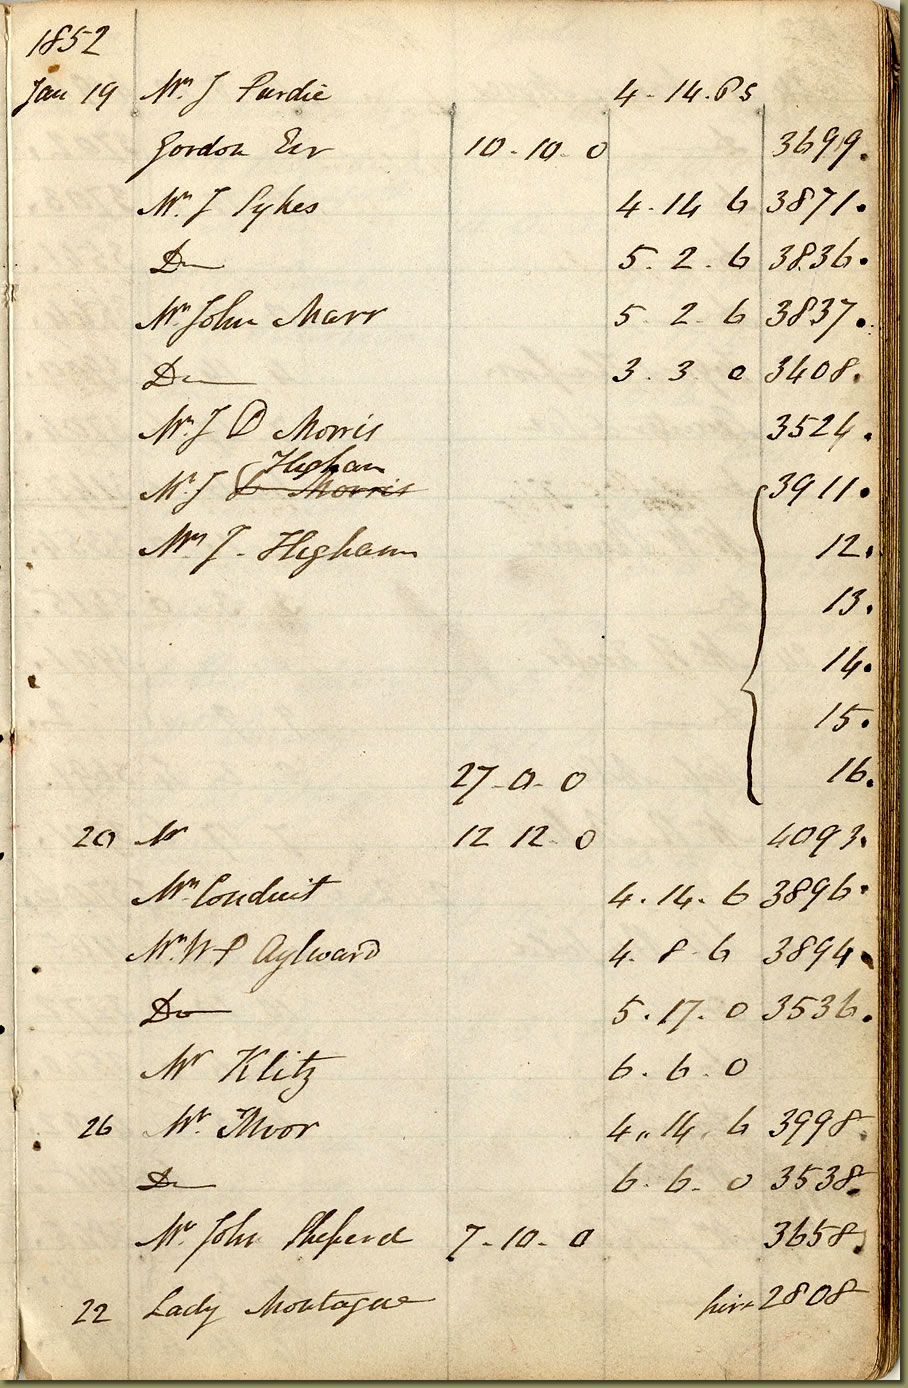 1852
Jan 19 Mr. J Purdie 4-14.6
Gordon Esr 10-10-0 3699.
Mr. J Sykes 4-14 6 3871.
Do 5.2.6 3836.
Mr. John Marr 5 2 6 3837.
Do 3.3.0 3408.
Mr. J D Morris 3524.
Higham
Mr. J D Morris 3911.
Mr J. Higham 12.
13.
14.
15.
27-0-0 16.
20 Mr 12 12-0 4093.
Mr. Conduit 4.14.6 3896.
Mr. W P Aylward 4.8-6 3894.
Do 5.17.0 3536.
Mr Klitz 6.6.0
26 Mr. Moor 4.14.6 3998.
Do 6.6.0 3538.
Mr. John Sheperd 7-10-0 3658.
22 Lady Montague hire 2808